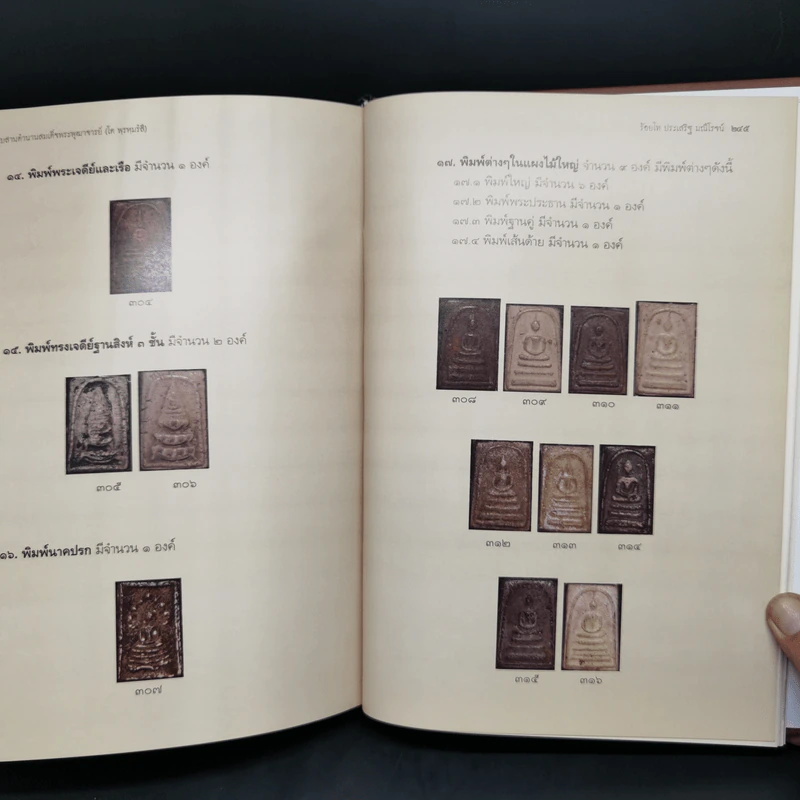 บสานตำนานสมเด็จพระพุฒาจารย์ (โต พฺรหฺมรํสี)
๑๔. พิมพ์พระเจดีย์และเรือ มีจำนวน ๑ องค์
๓๐๔
๑๕. พิมพ์ทรงเจดีย์ฐานสิงห์ ๓ ชั้น มีจำนวน ๒ องค์
๓๐๕ ๓๐๖
๑๖. พิมพ์นาคปรก มีจำนวน ๑ องค์
๓๐๗
ร้อยโท ประเสริฐ มณีโรจน์ ๒๔๕
๑๗. พิมพ์ต่างๆในแผงไม้ใหญ่ จำนวน ๙ องค์ มีพิมพ์ต่างๆดังนี้
๑๗.๑ พิมพ์ใหญ่ มีจำนวน ๖ องค์
๑๗.๒ พิมพ์พระประธาน มีจำนวน ๑ องค์
๑๗.๓ พิมพ์ฐานคู่ มีจำนวน ๑ องค์
๑๗.๔ พิมพ์เส้นด้าย มีจำนวน ๑ องค์
๓๐๘ ๓๐๙ ๓๑๐ ๓๑๑
๓๑๒ ๓๑๓ ๓๑๔
๓๑๕ ๓๑๖